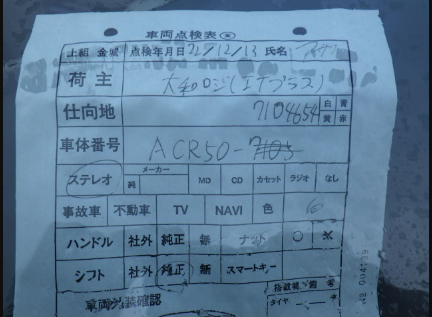 車両点検表
上組 金城 点検年月日 22/12/13 氏名
荷主 大和ロジ(エナプラス)
仕向地 7104654 白 青 黄 赤
車体番号 ACR50-7105
ステレオ メーカー 純 MD CD カセット ラジオ なし
事故車 不動車 TV NAVI 色
ハンドル 社外 純正 無 ナット
シフト 社外 純正 無 スマートキー
車両外装確認
タイヤ